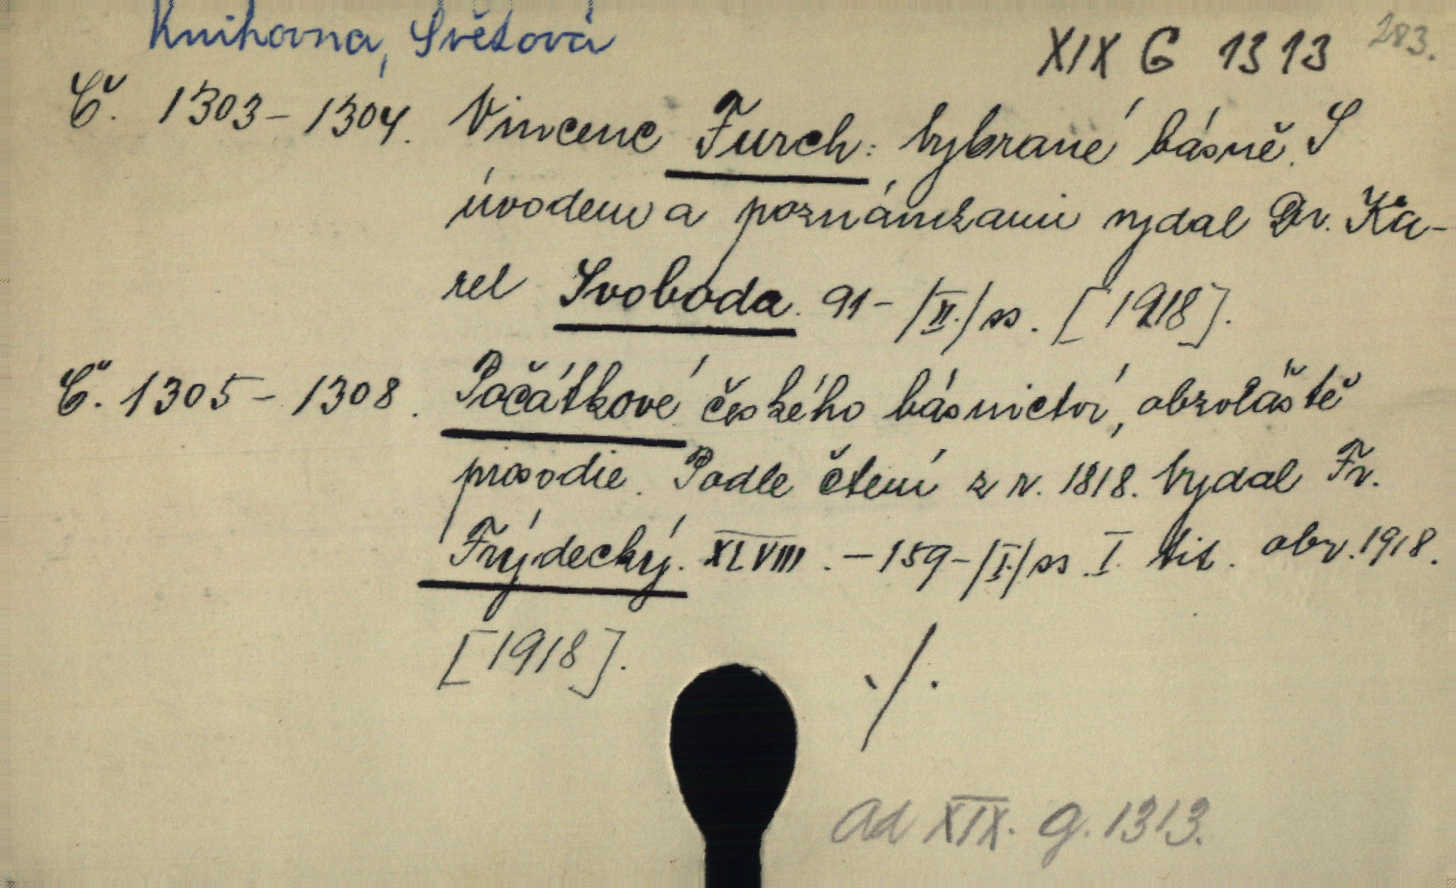 Knihovna, Světová
XIX G 1313 283.
Č. 1303-1304. Vincenc Furch: Vybrané básně. S
úvodem a poznámkami vydal Dr. Ka-
rel Svoboda. 91-/II./ ss. [1918].
Č. 1305-1308. Počátkové českého básnictví, obzvláště
prosodie. Podle čtení z r. 1818. Vydal Fr.
Frýdecký. XLVIII.-159-/I./ ss. I. tit. obr. 1918.
[1918].
./.
ad XIX. g. 1313.